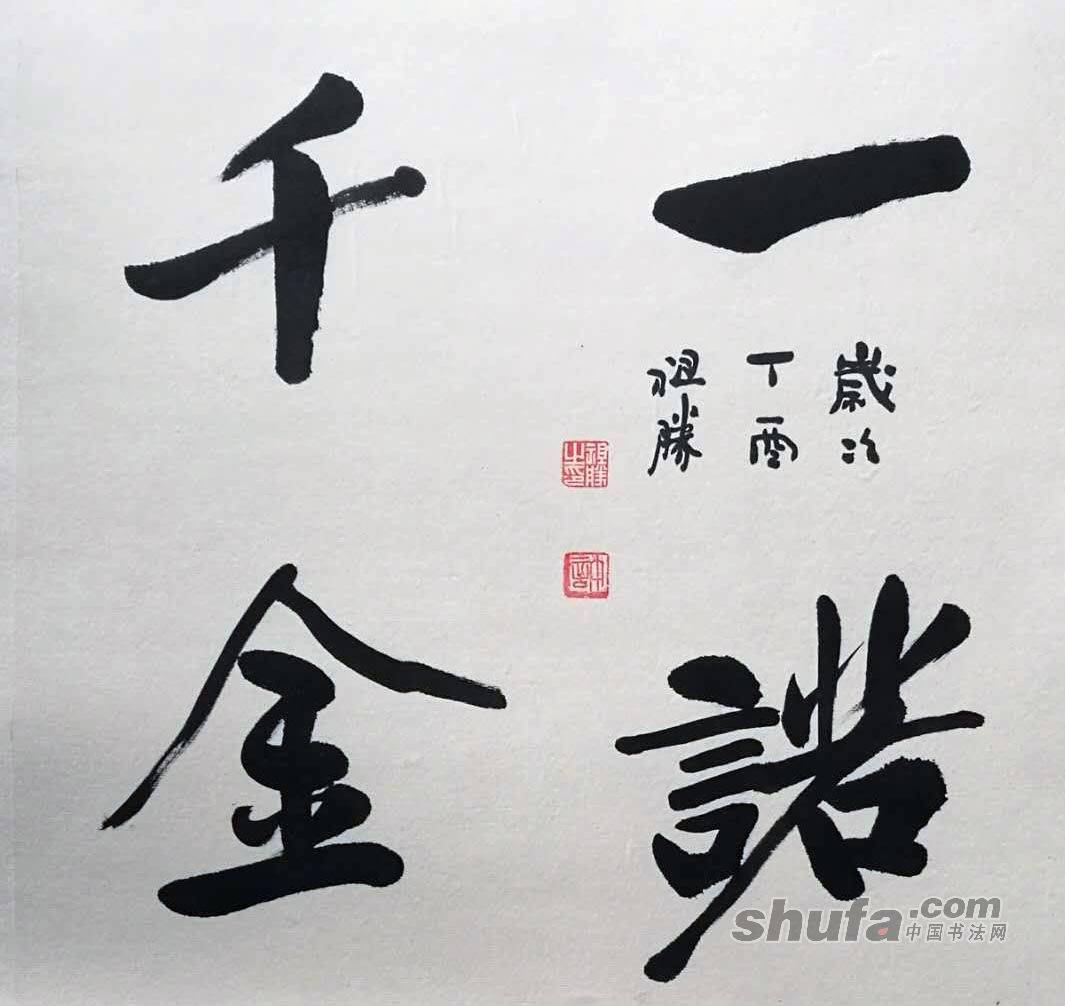 一諾
千金
歲次
丁酉
祖勝
shufa.com
中国书法网